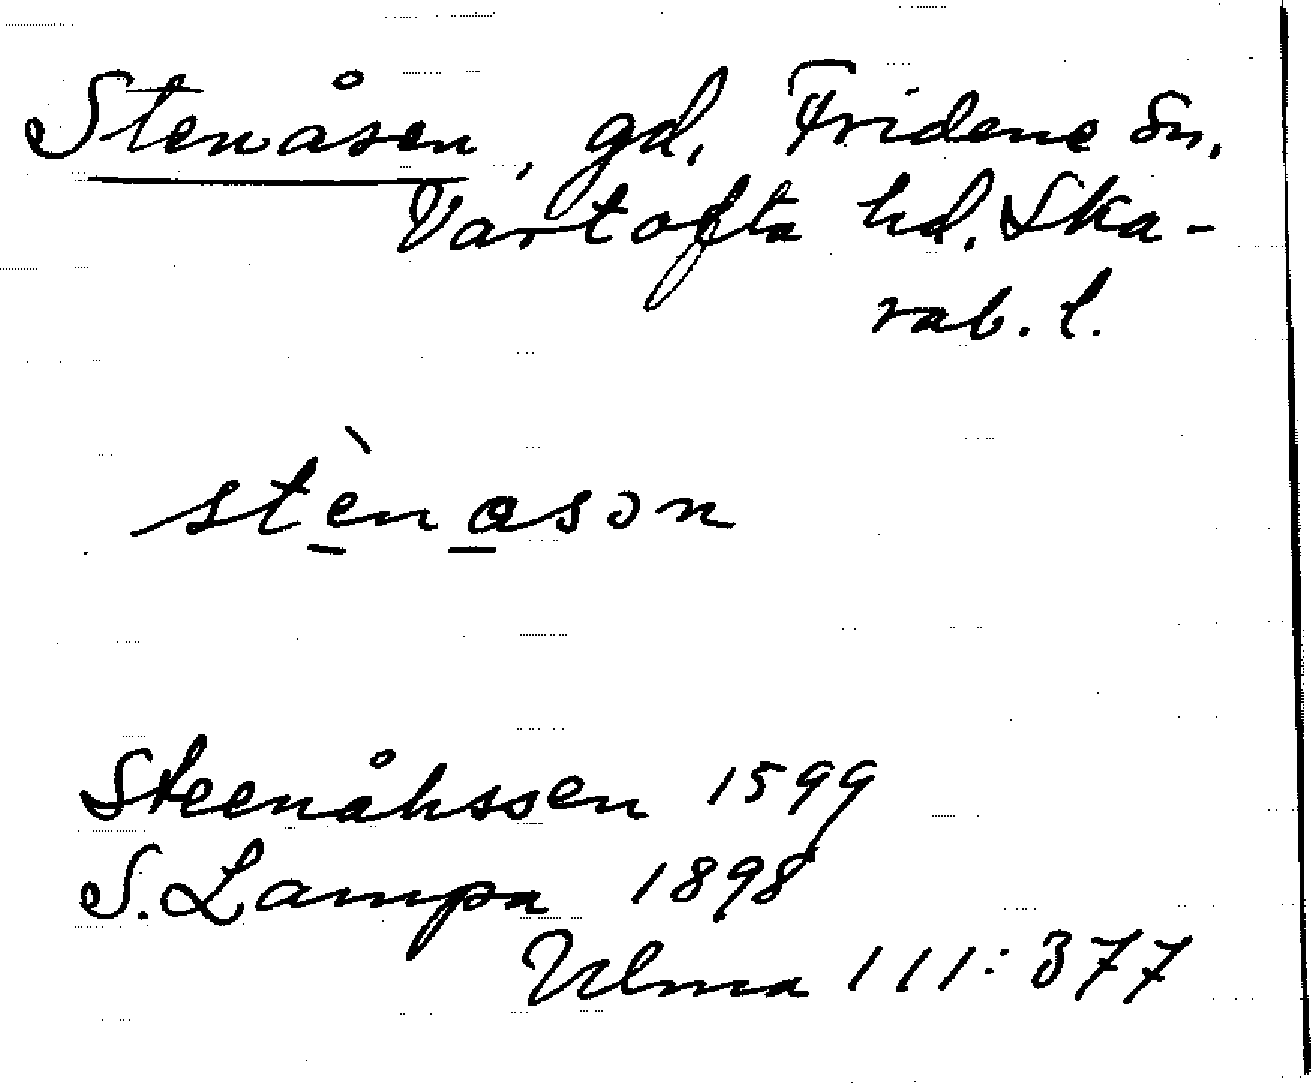 Stenåsen, gd, Fridene sn,
Vartofta hd. Ska-
rab. l.
stènason
Steenåhssen 1599
S. Lampa 1898
Ulma 111:377